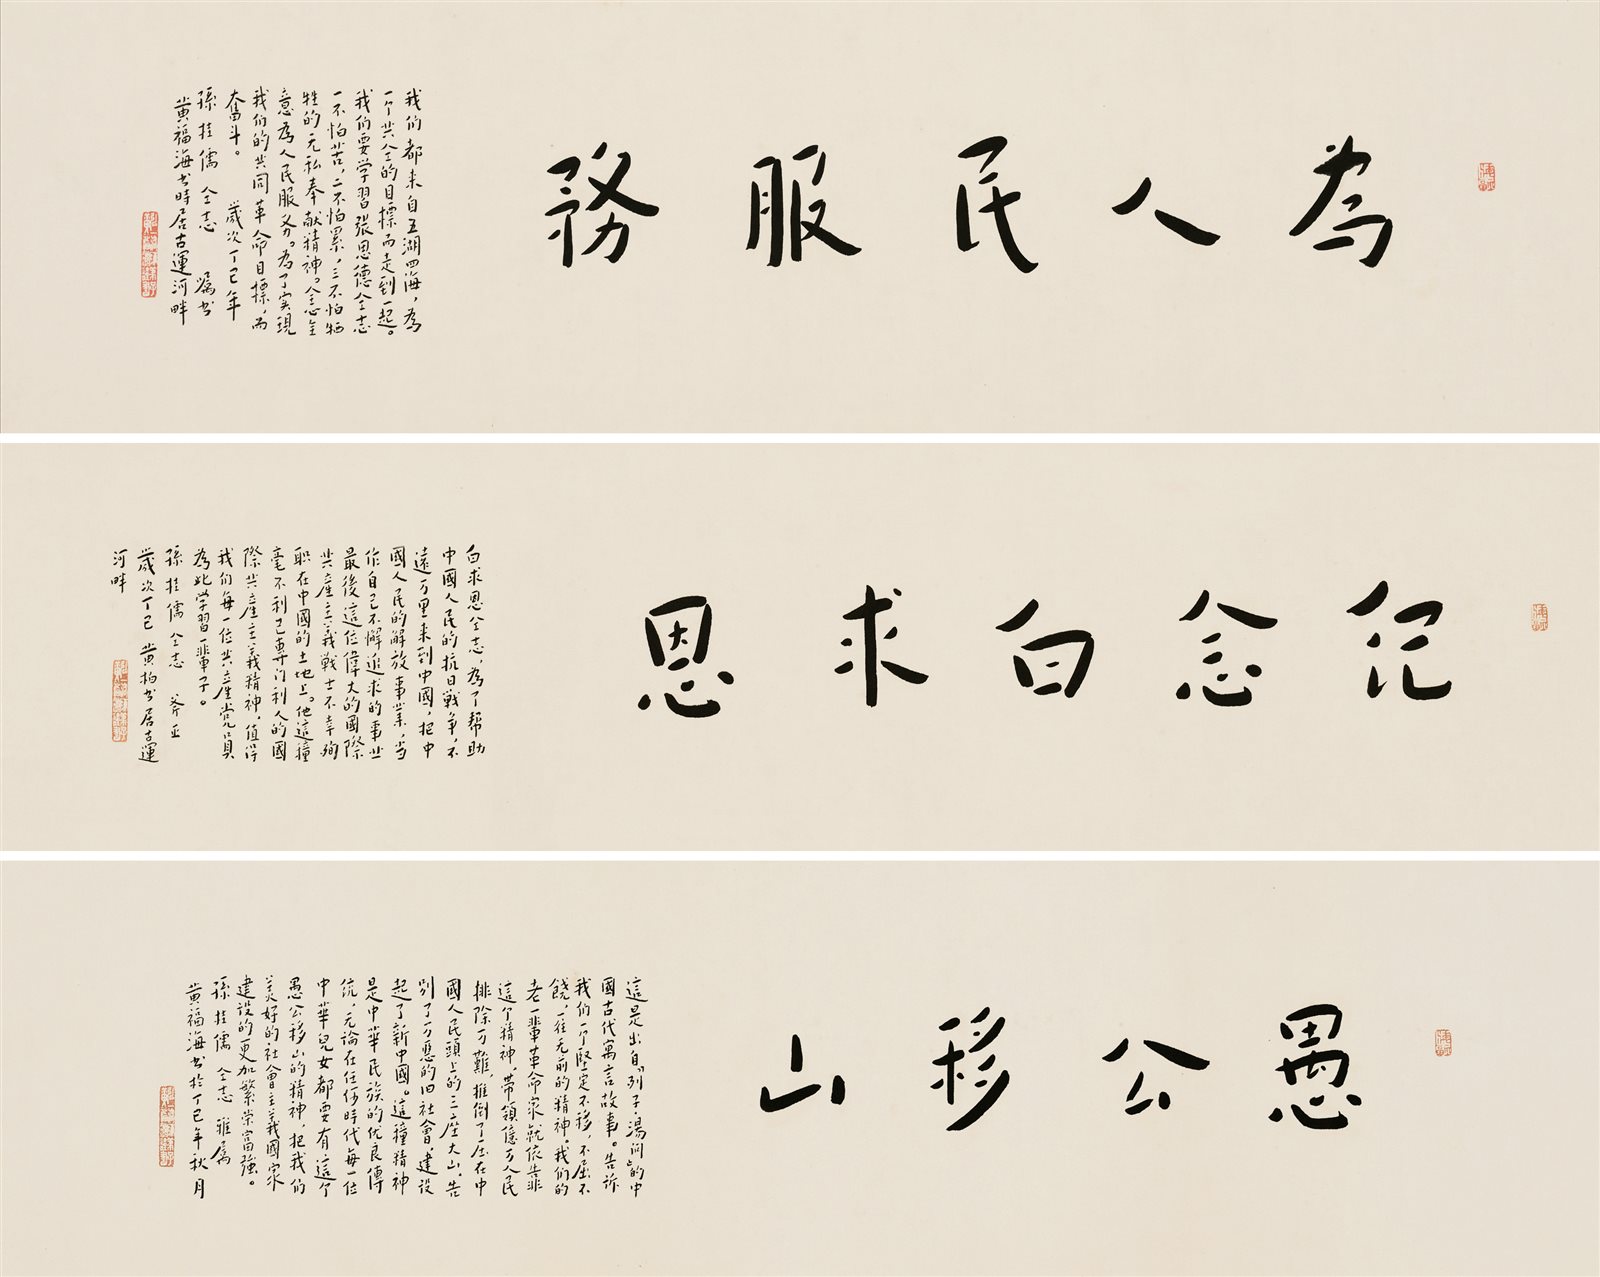 為人民服務
我们都来自五湖四海，為
一个共仝的目標而走到一起。
我们要学習張思德仝志
一不怕苦，二不怕累，三不怕牺
牲的无私奉献精神。仝心全
意為人民服务。為了実現
我们的共同革命目標，而
奮斗。 歲次丁巳年
孫桂儒仝志 嘱书
黄福海书時居古運河畔
纪念白求恩
白求恩仝志，為了帮助
中國人民的抗日戰争，不
遠万里来到中國，把中
國人民的解放事業，当
作自己不懈追求的事业
最後這位偉大的國際
共產主義戰士不幸殉
职在中國的土地上。他這種
毫不利己專门利人的國
際共產主義精神，值得
我们每一位共產党員
為此学習一輩子。
孫桂儒仝志 斧正
歲次丁巳 黄柏书居古運
河畔
愚公移山
這是出自《列子·湯问》的中
國古代寓言故事。告訴
我们一个堅定不移，不屈不
饒，一往无前的精神。我们的
老一輩革命家就依靠
這个精神，带領億万人民
排除万難，推倒了压在中
國人民頭上的三座大山，告
别了万惡的旧社會，建设
起了新中國。這種精神
是中華民族的优良傳
统，无論在任何時代每一位
中華兒女都要有這个
愚公移山的精神，把我们
美好的社會主義國家
建设的更加繁榮富強。
孫桂儒仝志 雅属
黄福海书於丁巳年秋月